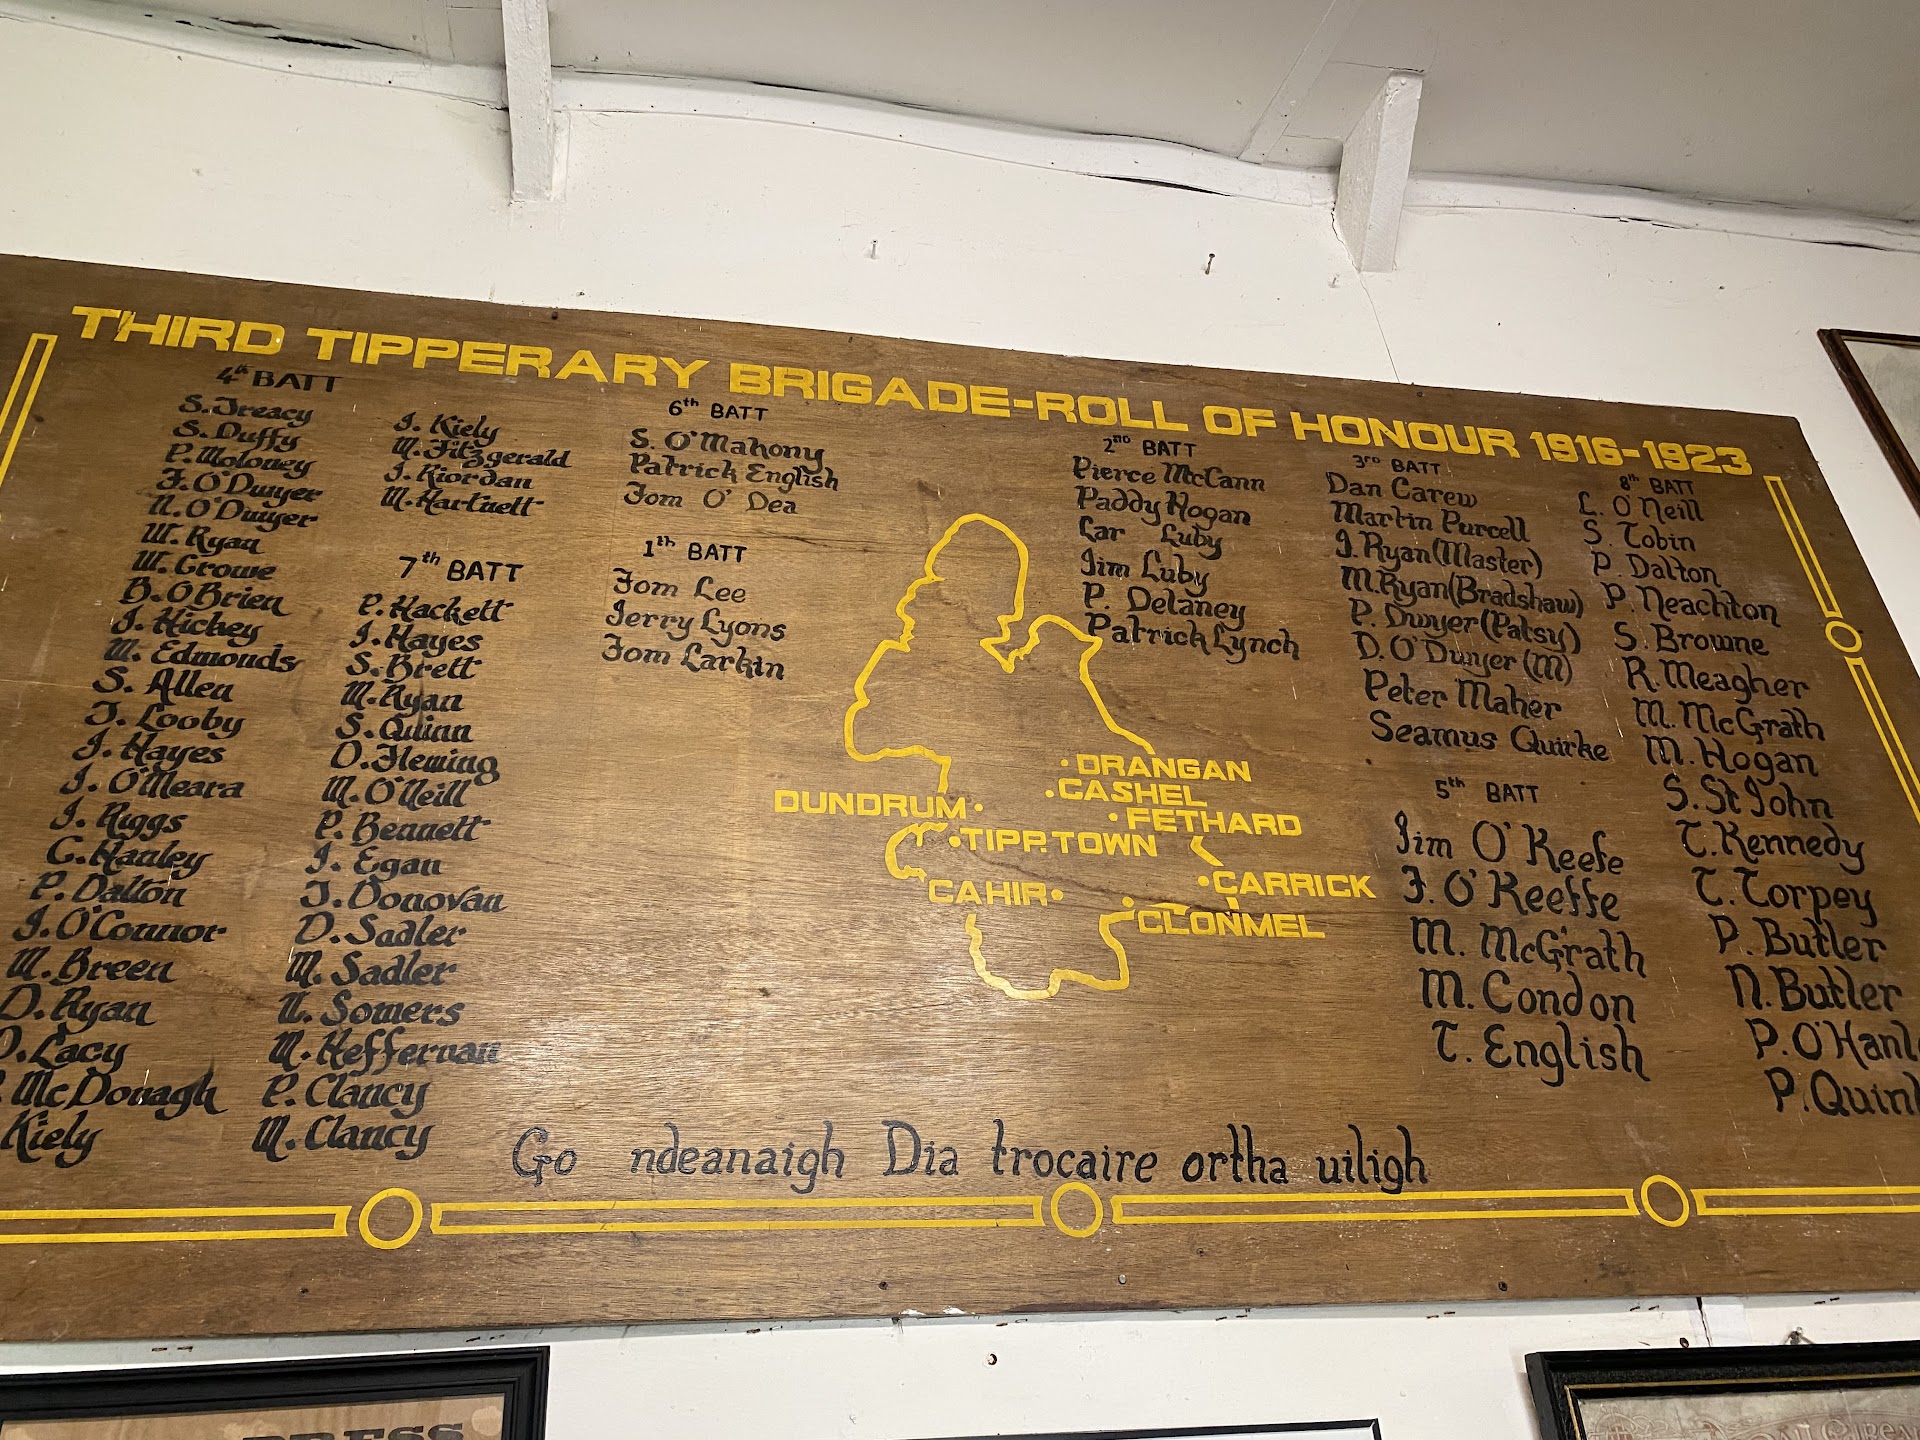 THIRD TIPPERARY BRIGADE-ROLL OF HONOUR 1916-1923
4th BATT
S. Treacy
S. Duffy
P. Moloney
J. O'Dwyer
N. O'Dwyer
W. Ryan
W. Crowe
B. O'Brien
J. Hickey
M. Edmonds
S. Allen
J. Looby
J. Hayes
J. O'Meara
J. Riggs
C. Hanley
P. Dalton
J. O'Connor
M. Breen
D. Ryan
D. Lacy
McDonagh
Kiely
J. Kiely
M. Fitzgerald
J. Riordan
M. Hartnett
7th BATT
P. Hackett
J. Hayes
S. Brett
M. Ryan
S. Quinn
O. Fleming
M. O'Neill
P. Bennett
J. Egan
J. Donovan
D. Sadler
M. Sadler
N. Somers
M. Heffernan
P. Clancy
M. Clancy
6th BATT
S. O'Mahony
Patrick English
Tom O'Dea
1th BATT
Tom Lee
Jerry Lyons
Tom Larkin
2nd BATT
Pierce McCann
Paddy Hogan
Lar Luby
Jim Luby
P. Delaney
Patrick Lynch
3rd BATT
Dan Carew
Martin Purcell
J. Ryan (Master)
M. Ryan (Bradshaw)
P. Dwyer (Patsy)
D. O'Dwyer (M)
Peter Maher
Seamus Quirke
5th BATT
Jim O'Keefe
J. O'Keeffe
M. McGrath
M. Condon
T. English
8th BATT
L. O'Neill
S. Tobin
P. Dalton
P. Neachton
S. Browne
R. Meagher
M. McGrath
M. Hogan
S. St John
T. Kennedy
T. Torpey
P. Butler
N. Butler
P. O'Hanl
P. Quinl
DRANGAN
CASHEL
DUNDRUM
FETHARD
TIPP. TOWN
CARRICK
CAHIR
CLONMEL
Go ndeanaigh Dia trocaire ortha uiligh
PRESS